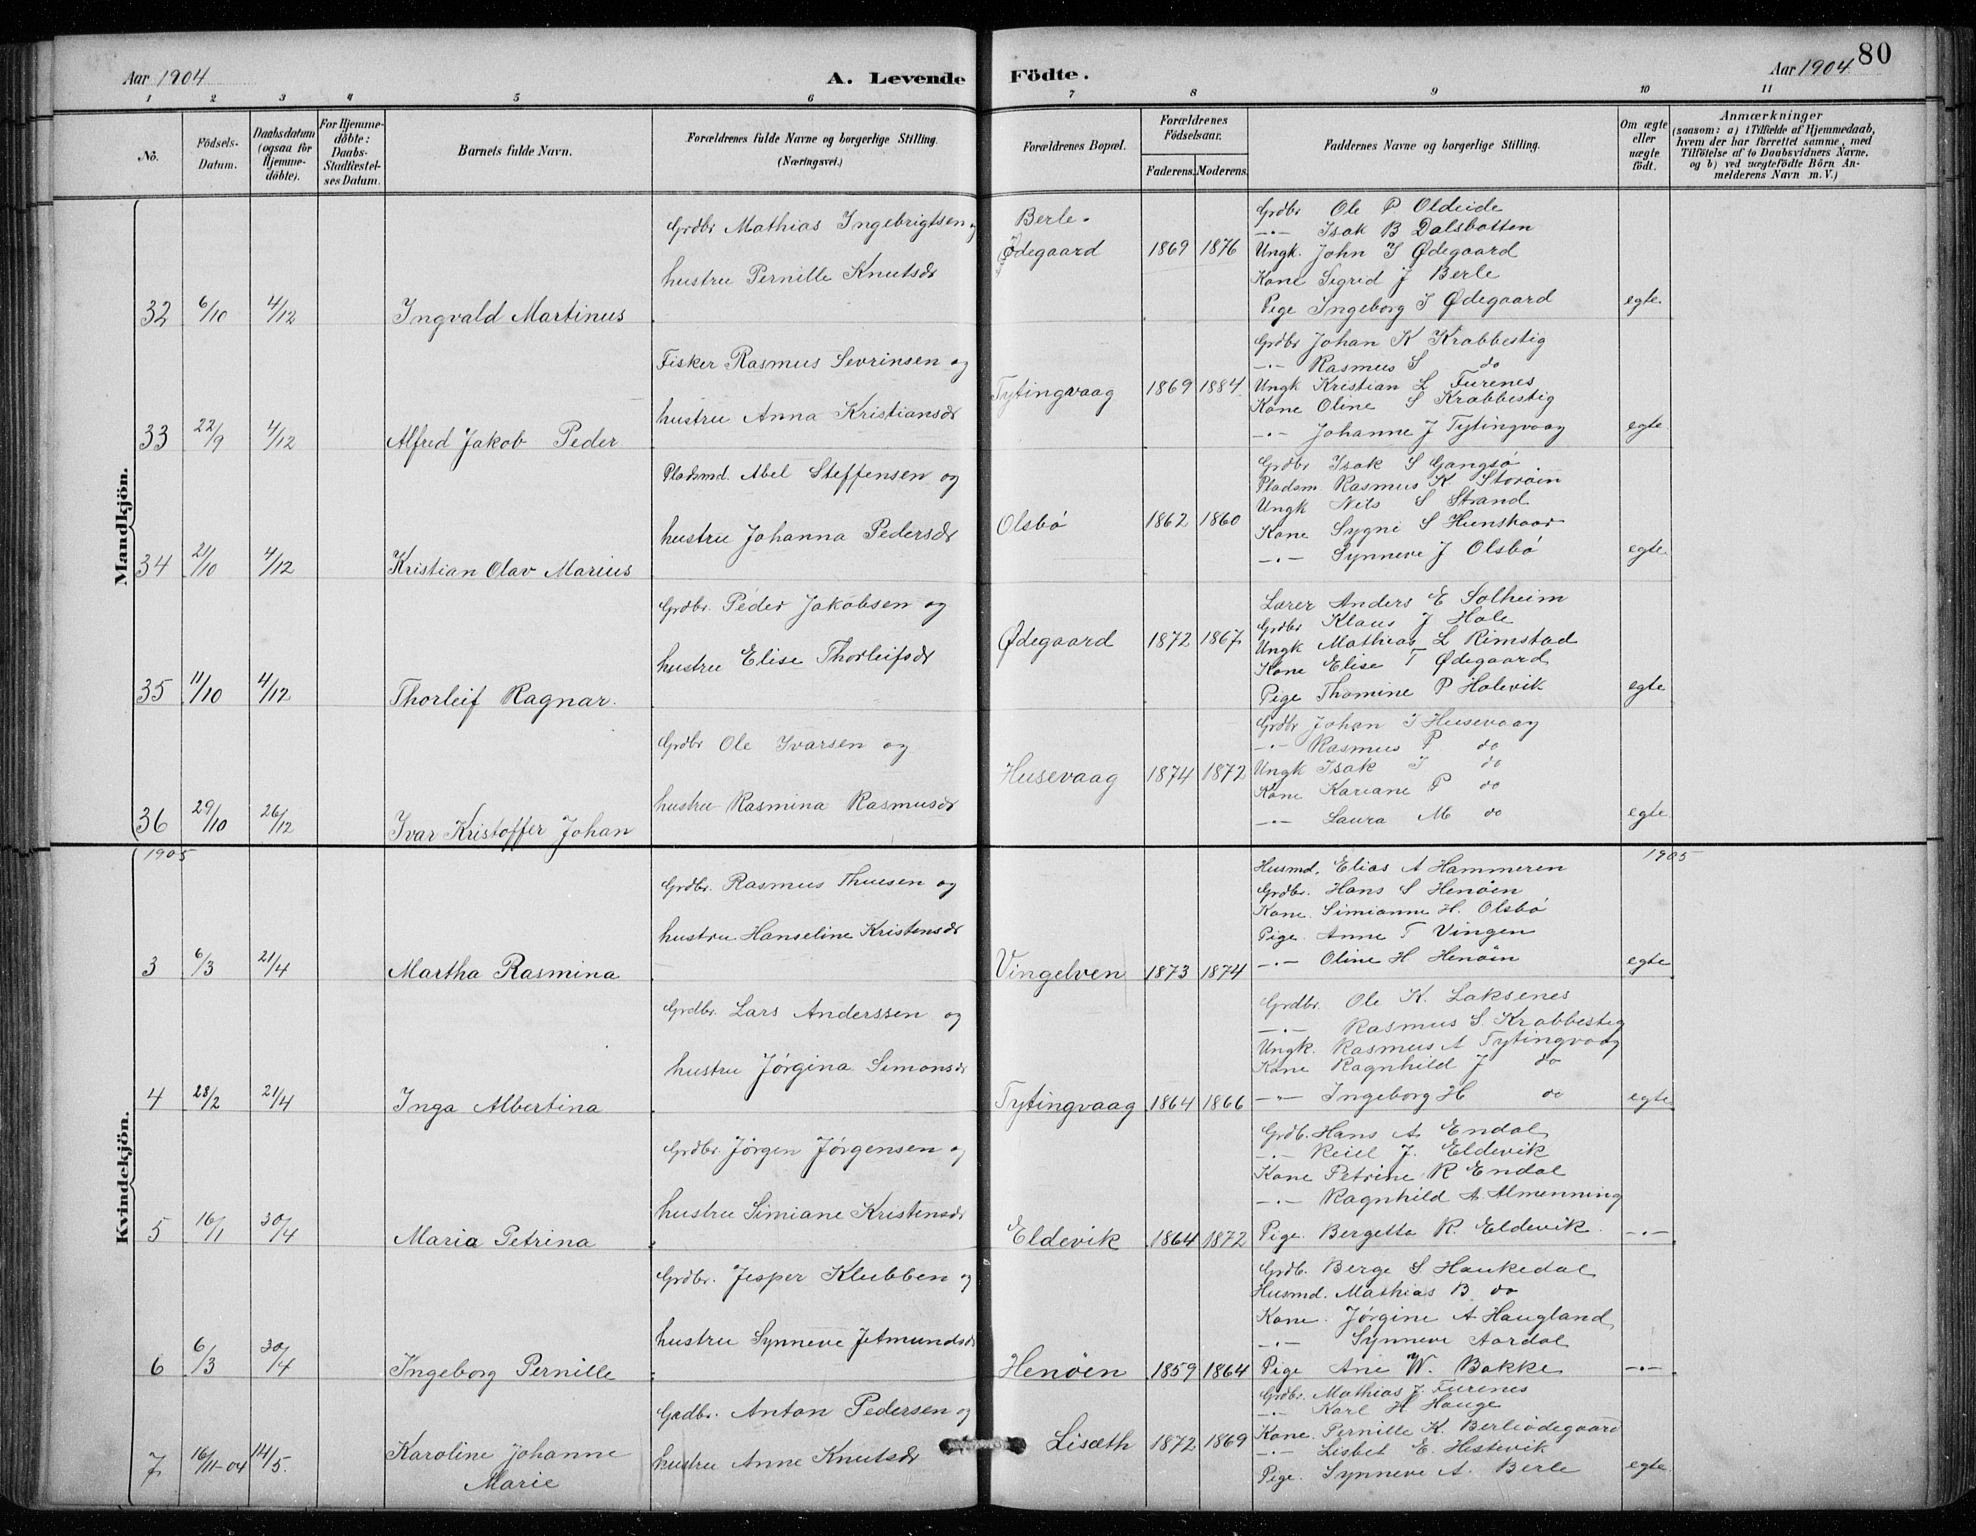 80
Aar 1904
A. Levende Födte.
Aar 1904
1 2 3 4 5 6 7 8 9 10 11
No.
Födsels-Datum.
Daabsdatum (ogsaa for Hjemme-döbte).
For Hjemme-döbte: Daabs-Stadfæstel-ses Datum.
Barnets fulde Navn.
Forældrenes fulde Navne og borgerlige Stilling. (Næringsvei.)
Forældrenes Bopæl.
Forældrenes Födselsaar.
Faderens. Moderens.
Faddernes Navne og borgerlige Stilling.
Om ægte eller uægte födt.
Anmærkninger
(saasom: a) i Tilfælde af Hjemmedaab, hvem der har forrettet samme, med Tilföielse af to Daabsvidners Navne, og b) ved uægtefödte Börn An-melderens Navn m. V.)
Mandkjön.
32 6/10 4/12 Ingvald Martinus
Grdbr Mathias Ingebrigtsen og
hustru Pernille Knutsdr
Berle-
Ødegaard 1869 1876
Grdbr Ole P Oldeide
-"- Isak B Dalsbotten
Ungk. John I Ødegaard
Kone Sigrid J Berle
Pige Ingeborg I Ødegaard egte.
33 22/9 4/12 Alfred Jakob Peder
Fisker Rasmus Sevrinsen og
hustru Anna Kristiansdr
Tytingvaag 1869 1884
Grdbr Johan K Krabbestig
-"- Rasmus S do
Ungk Kristian L Furenes
Kone Oline S Krabbestig
-"- Johanne J Tytingvaag egte
34 21/10 4/12 Kristian Olav Marius
Pladsmd. Abel Steffensen og
hustru Johanna Pedersdr
Olsbö 1862 1860
Grdbr Isak S Gangsö
Pladsm. Rasmus K Storöen
Ungk Nils S Strand
Kone Sygni S Hunskaar
-"- Synneve J Olsbö egte
35 11/10 4/12 Thorleif Ragnar.
Grdbr. Peder Jakobsen og
hustru Elise Thorleifsdr
Ødegaard 1872 1867
Lærer Anders E Solheim
Grdbr Klaus J Hole
Ungk Mathias L Rimstad
Kone Elise T Ødegaard
Pige Thomine P Holevik egte
36 29/10 26/12 Ivar Kristoffer Johan
Grdbr Ole Ivarsen og
hustru Rasmina Rasmusdr
Husevaag 1874 1872
Grdbr Johan I Husevaag
-"- Rasmus P do
Ungk Isak I do
Kone Kariane P do
-"- Laura M do egte
Kvindekjön.
1905 1905
3 6/3 21/4 Martha Rasmina
Grdbr. Rasmus Thuesen og
hustru Hanseline Kristensdr
Vingelven 1873 1874
Husmd. Elias A Hammeren
Grdbr. Hans S Henöen
Kone. Simianne H. Olsbö
Pige. Anne T Vingen
-"- Oline H Henöen egte
4 28/2 21/4 Inga Albertina
Grdbr. Lars Anderssen og
hustru Jørgina Simonsdr
Tytingvaag 1864 1866
Grdbr. Ole K. Laksenes
-"- Rasmus S. Krabbestig
Ungk. Rasmus A Tytingvaag
Kone Ragnhild J do
-"- Ingeborg H do egte
5 16/1 30/4 Maria Petrina
Grdbr. Jörgen Jörgensen og
hustru Simiane Kristensdr
Eldevik 1864 1872
Grdb. Hans A Endal
-"- Reiel J. Eldevik
Kone Petrine R Endal
-"- Ragnhild A Almenning
Pige. Bergetta R. Eldevik. -"-
6 6/3 30/4 Ingeborg Pernille
Grdbr. Jesper Klubben og
hustru Synneve Jetmundsdr
Henöen 1859 1864
Grdb. Berge S. Haukedal
Husmd. Mathias B. do
Kone. Jørgine A Haugland
-"- Synneve Aardal
Pige Ane W. Bakke -"-
7 16/11-04 14/5. Karoline Johanne
Marie
Gadbr. Anton Pedersen og
hustru Anne Knutsdr
Lisæth 1872 1869
Grdbr. Mathias J. Furenes
-"- Karl H Hauge
Kone. Pernille K. Berleödegaard
-"- Lisbet E. Hestevik
Pige. Synneve A. Berle egte